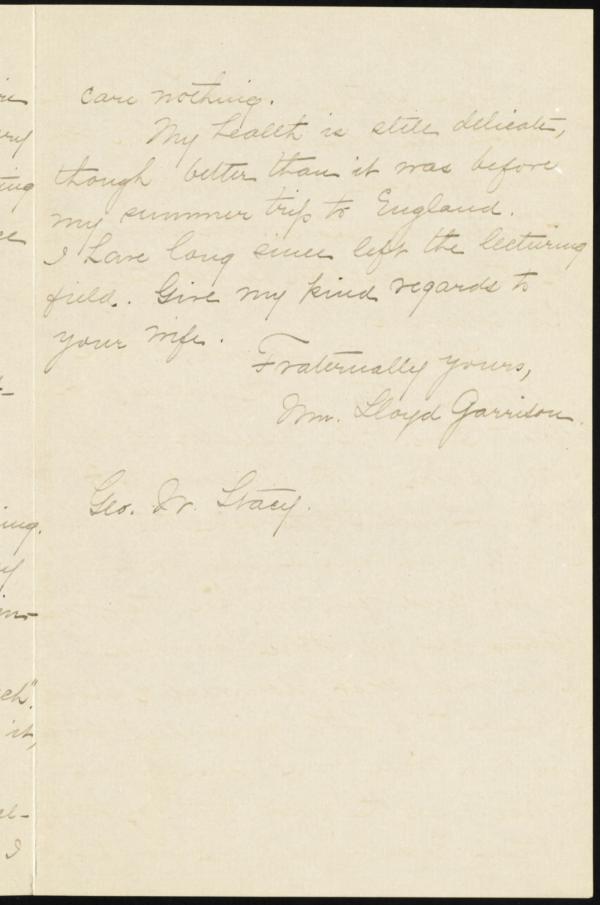 care nothing.
My health is still delicate,
though better than it was before
my summer trip to England.
I have long since left the lecturing
field. Give my kind regards to
your wife.
Fraternally yours,
Wm. Lloyd Garrison.
Geo. W. Stacy.
ing
ing.
ch".
it,
I